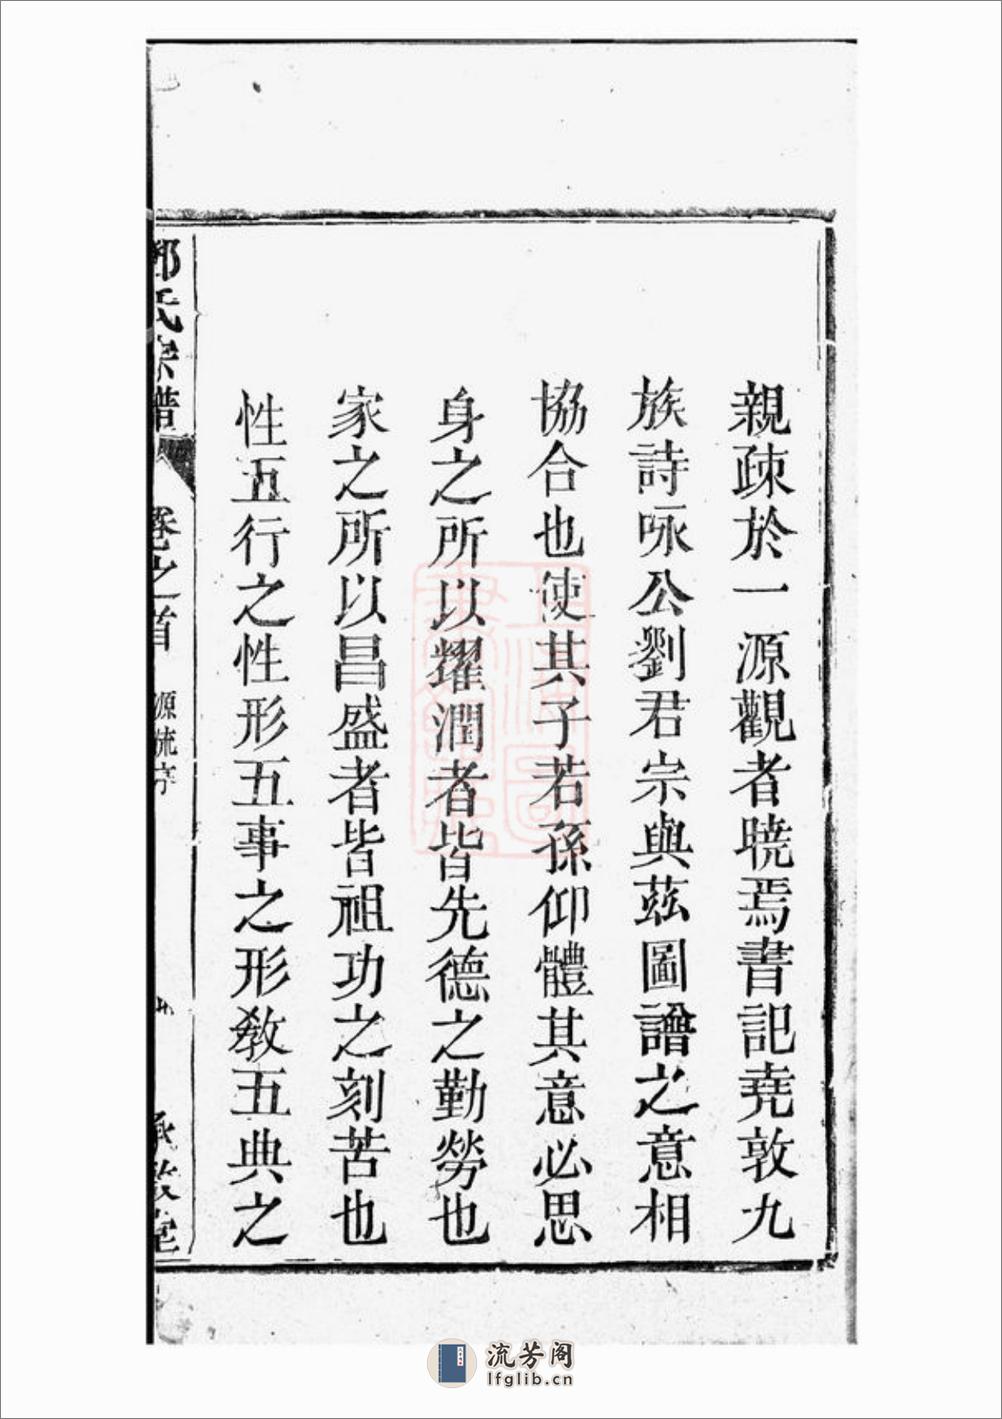 親疎於一源觀者曉焉書記堯敦九
族詩咏公劉君宗與茲圖譜之意相
協合也使其子若孫仰體其意必思
身之所以耀潤者皆先德之勤勞也
家之所以昌盛者皆祖功之刻苦也
性五行之性形五事之形敎五典之
氏宗譜
卷之首
源流序
流芳阁
lfglib.cn